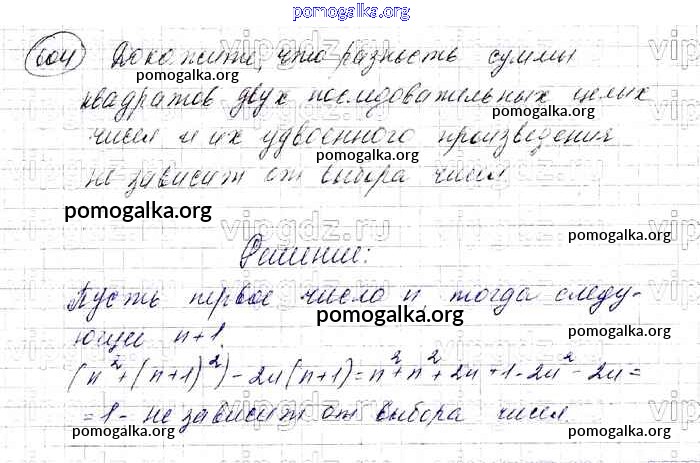 pomogalka.org
604 Докажите, что разность суммы
pomogalka.org
квадратов двух последовательных целых
чисел и их удвоенного произведения
pomogalka.org
не зависит от выбора чисел
pomogalka.org
vipgdz.ru
Решение:
pomogalka.org
Пусть первое число n, тогда следу-
ющее n+1.
pomogalka.org
(n²+(n+1)²)-2n(n+1)=n²+n²+2n+1-2n²-2n=
=1- не зависит от выбора чисел.
pomogalka.org
pomogalka.org
pomogalka.org